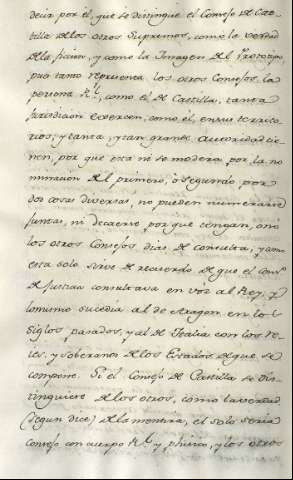 decir por el, que se distingue el Consejo de Cas-
tilla de los otros Supremos, como la verdad
de la ficcion, y como la Imagen del Prototipo,
pues tanto representa los otros Consejos la
persona R.l, como el de Castilla, tanta
Jurisdicion exercen, como el, en sus territo-
rios, y tanta, y tan grande Autoridad tie-
nen, por que esta ni se modera por la no-
minacion de primero, ò segundo, por
dos cosas diversas, no pueden numerarse
juntas, ni decaerse, por que tengan, o nó
los otros Consejos dias de consulta, y como
esta solo sirve de recuerdo de que el cons.o
de Justicia consultava en voz al Rey, y
lo mismo sucedia al de Aragon en los
Siglos pasados, y al de Italia con los Re-
ies, y Soberanos de los Estados de que se
compone. Si el Consejo de Castilla se dis-
tinguiere de los otros, como la verdad
(segun dice) de la mentira, el solo seria
Consejo con cuerpo R.l y phisico, y los otros